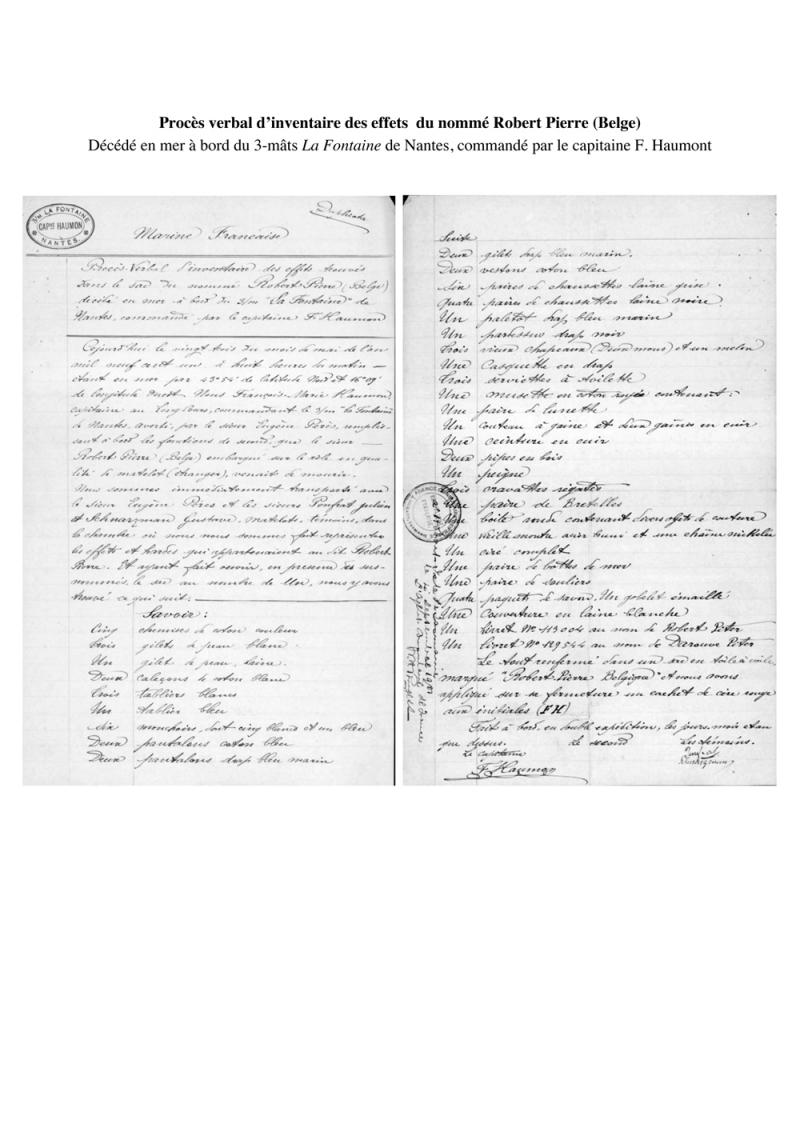 Procès verbal d’inventaire des effets du nommé Robert Pierre (Belge)
Décédé en mer à bord du 3-mâts La Fontaine de Nantes, commandé par le capitaine F. Haumont
3/m LA FONTAINE
CAPne HAUMON
NANTES
Duplicata
Marine Française
Procès-Verbal d'inventaire des effets trouvés
dans le sac du nommé Robert Pierre (Belge)
décédé en mer à bord du 3/m "La Fontaine" de
Nantes, commandé par le capitaine F. Haumon
Cejourd'hui le vingt trois du mois de mai de l'an
mil neuf cent un à huit heures du matin —
étant en mer par 43°54' de latitude Nord et
de longitude Ouest. Nous François-Marie Haumon
capitaine au long cours, commandant le 3/m "La Fontaine"
de Nantes, averti, par le sieur Eugène Pérès, remplis-
sant à bord les fonctions de second, que le sieur —
Robert Pierre (Belge) embarqué sur le rôle en qua-
lité de matelot (étranger), venait de mourir.
Nous sommes immédiatement transporté avec
le sieur Eugène Pérès et les sieurs Ponfrat Julien
et Schwarzman Gustave, matelots, témoins, dans
la chambre où nous nous sommes fait représenter
les effets et hardes qui appartenaient au dit Robert
Pierre. Et ayant fait ouvrir, en présence des sus-
nommés, le sac au nombre de Un, nous y avons
trouvé ce qui suit:
Savoir:
Cinq chemises de coton couleur
Trois gilets de peau blanc
Un gilet de peau, laine.
Deux caleçons de coton blanc
Trois tabliers blancs
Un tablier bleu
Six mouchoirs, dont cinq blancs et un bleu
Deux pantalons coton bleu
Deux pantalons drap bleu marin
Suite
Deux gilets drap bleu marin.
Deux vestons coton bleu
Six paires de chaussettes laine grise.
Quatre paires de chaussettes laine noire
Un paletot drap bleu marin
Un pardessus drap noir
Trois vieux chapeaux (Deux mous) et un melon
Une Casquette en drap
Trois serviettes à toilette
Une musette en coton rayée contenant:
Une paire de lunette
Un Couteau à gaîne et deux gaînes en cuir
Une ceinture en cuir
Deux pipes en bois
Un peigne
Trois cravattes régates
Une paire de Bretelles
Une boîte contenant divers objets de couture
Une vieille montre acier bruni et une chaîne nickelée
Un ciré complet
Une paire de bottes de mer
Une paire de souliers
Quatre paquets de savon. Un gobelet émaillé
Une Couverture en laine blanche
Un livret N° 113004 au nom de Robert Peter
Un livret N° 129544 au nom de Darouve Peter
Le tout renfermé dans un sac en toile à voile
marqué "Robert Pierre Belgique" et nous avons
appliqué sur sa fermeture un cachet de cire rouge
aux initiales (F H)
Fait à bord, en double expédition, les jours, mois et an
que dessus. Le second Les témoins.
Le capitaine
F Haumon